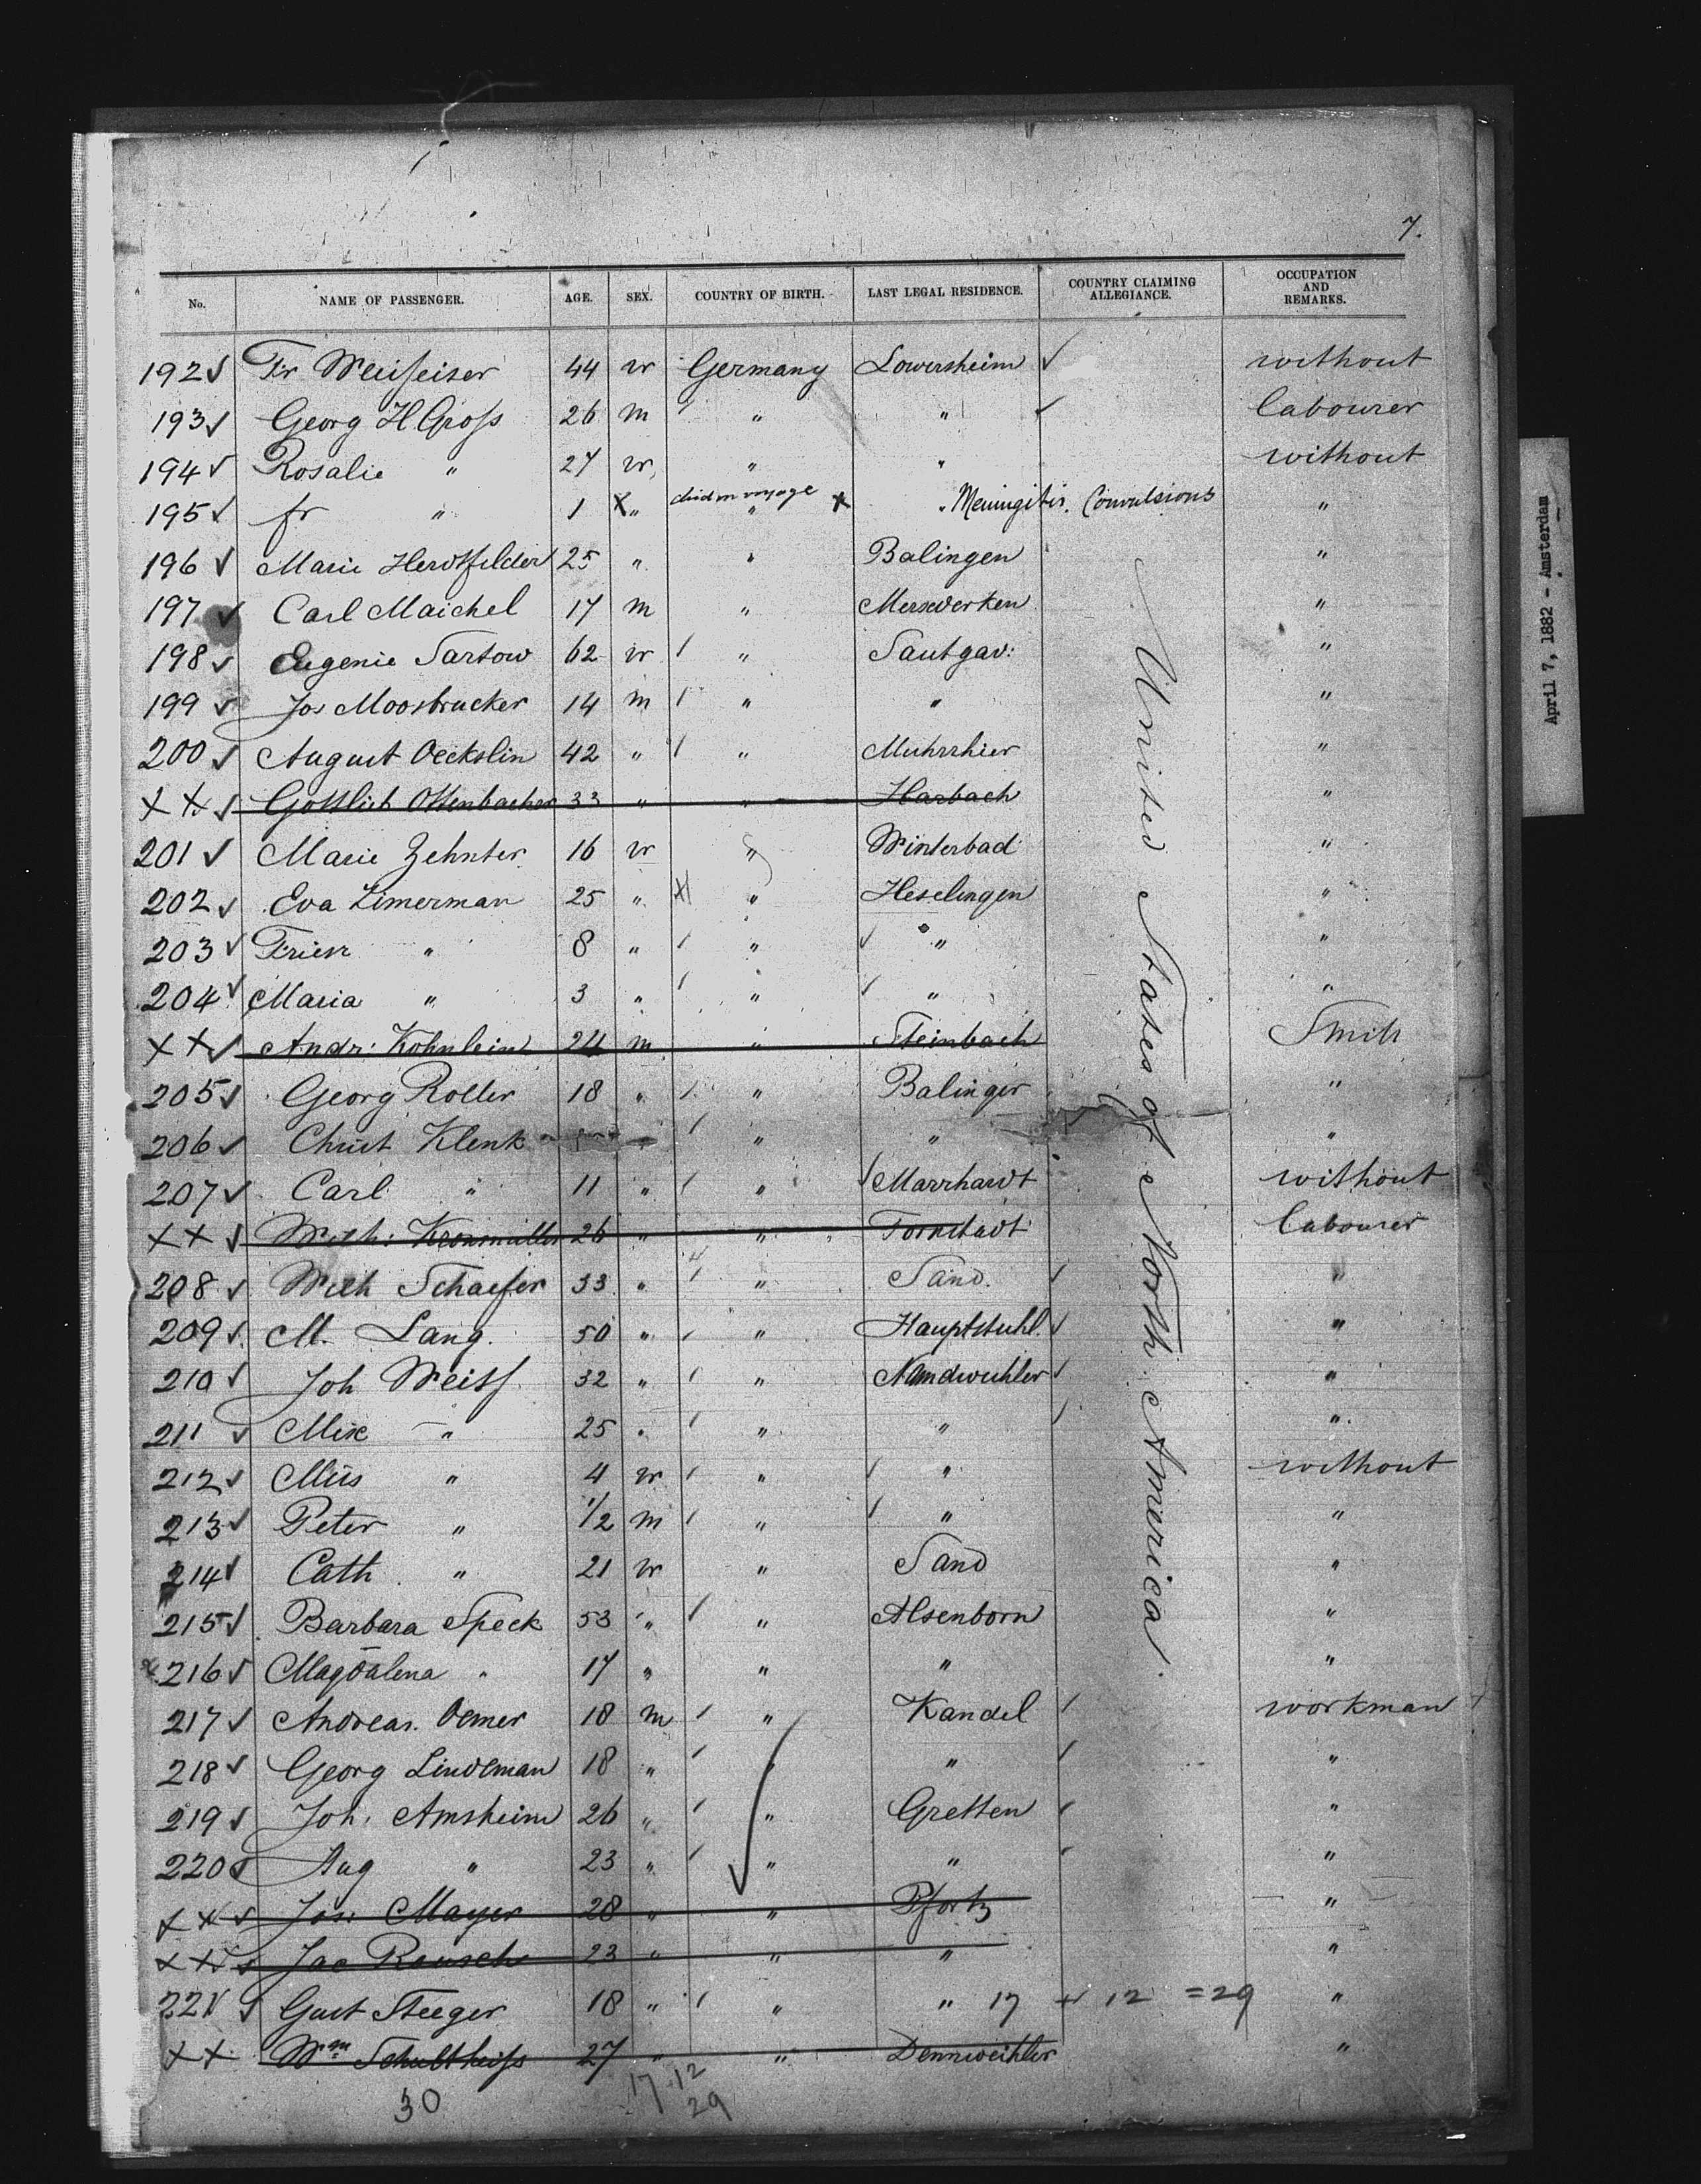 7.
No. NAME OF PASSENGER. AGE. SEX. COUNTRY OF BIRTH. LAST LEGAL RESIDENCE. COUNTRY CLAIMING ALLEGIANCE. OCCUPATION AND REMARKS.
192 Fr 44 w Germany Lowersheim without
193 Georg H Gross 26 m " " labourer
194 Rosalie " 27 w " " without
195 fr " 1 " died on voyage " " Meningitis. Convulsions "
196 Marie Herdtfelder 25 " " Balingen "
197 Carl Maichel 17 m " "
198 Eugenie Sartow 62 w " Sautgav: "
199 Jos Moosbrucker 14 m " " "
200 August Oeckslin 42 " " Muhrrhier "
XX Gottlieb Ottenbacher 33 " " Harbach "
201 Marie Zehnter 16 w " Winterbad "
202 Eva Zimerman 25 " " Heselingen "
203 " 8 " " " "
204 Maria " 3 " " " "
XX Andr: Kohnlein 24 m " Steinbach Smith
205 Georg Roller 18 " " Balinger "
206 Christ Klenk " " "
207 Carl " 11 " " Marrhardt without
XX Wilh: Kronmüller 26 " " Tornstadt labourer
208 Wilh Schaefer 33 " " Sand. "
209 M. Lang. 50 " " Hauptstuhl. "
210 Joh Weiss 32 " " "
211 " 25 " " " "
212 " 4 w " " without
213 Peter " 1/2 m " " "
214 Cath. " 21 w " Sand "
215 Barbara Speck 53 " " Alsenborn "
216 Magdalena " 17 " " " "
217 Andreas. Oemer 18 m " Kandel workman
218 Georg Lindeman 18 " " " "
219 Joh. Amsheim 26 " " Gretten "
220 Aug " 23 " " " "
XX Jos: Mayer 28 " " Pfortz "
XX Jac Rausch 23 " " " "
221 Gust Steeger 18 " " " 17 + 12 = 29 "
XX Wm Schultheiss 27 " " Dennweihler "
30 17 12
29
United States of North America.
April 7, 1882 - Amsterdam